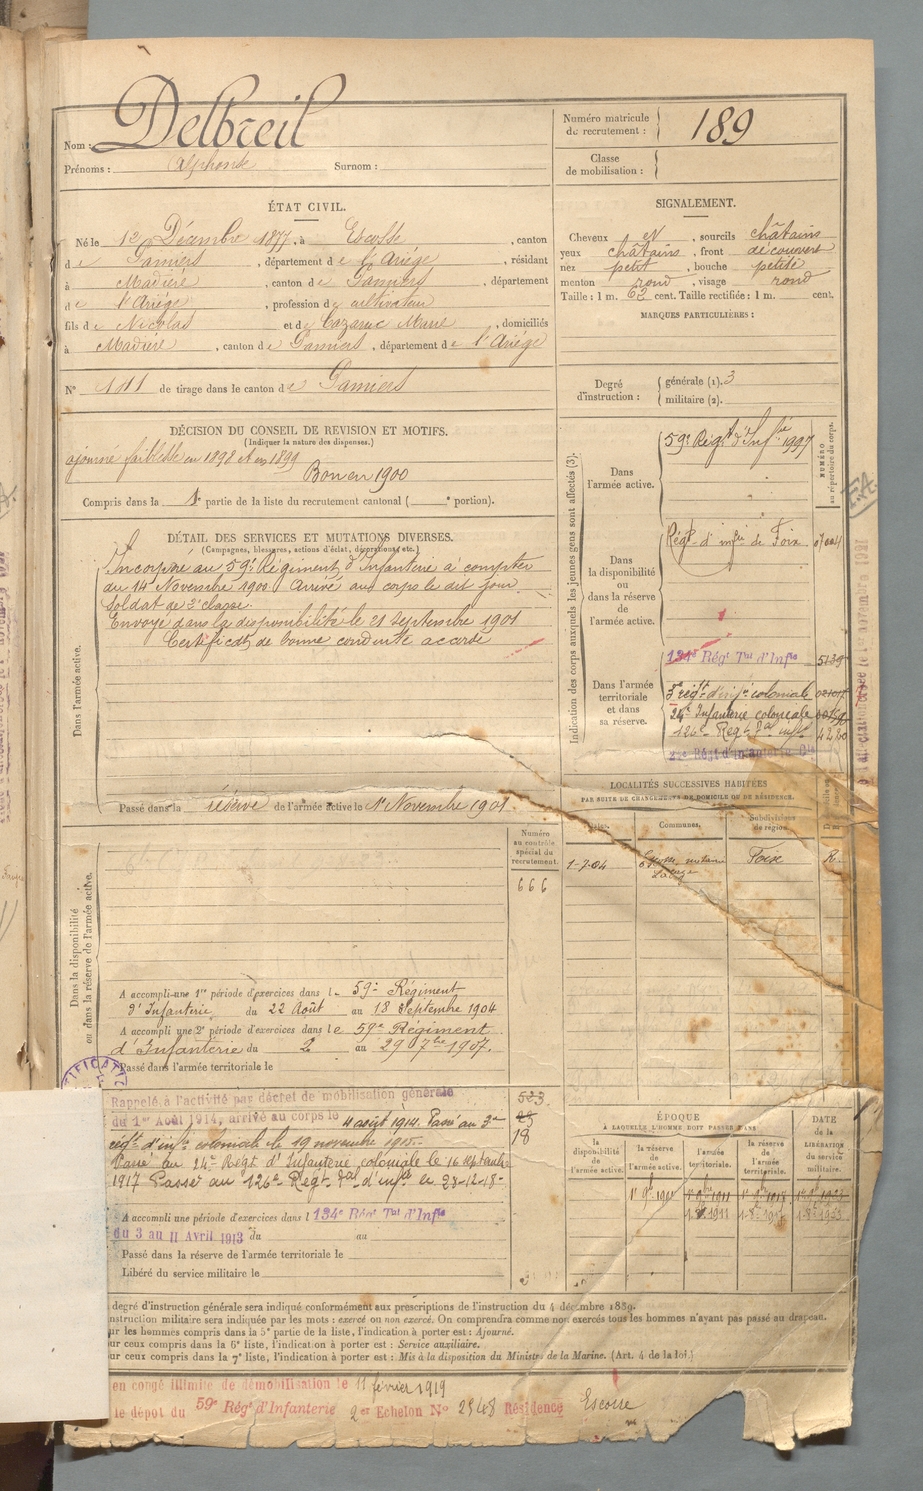 Nom : Delbreil
Prénoms : Alphonse Surnom :
Numéro matricule de recrutement : 189
Classe de mobilisation :
ÉTAT CIVIL.
Né le 12 Décembre 1877, à Escosse, canton
de Pamiers, département de l'Ariège, résidant
à Madière, canton de Pamiers, département
de l'Ariège, profession de cultivateur
fils de Nicolas et de Cazarac Marie, domiciliés
à Madière, canton de Pamiers, département de l'Ariège
N° 111 de tirage dans le canton de Pamiers
SIGNALEMENT.
Cheveux N, sourcils châtains
yeux châtains, front découvert
nez petit, bouche petite
menton rond, visage rond
Taille : 1 m. 62 cent. Taille rectifiée : 1 m. cent.
MARQUES PARTICULIÈRES :
Degré d'instruction : générale (1). 3
militaire (2).
DÉCISION DU CONSEIL DE REVISION ET MOTIFS.
(Indiquer la nature des dispenses.)
ajourné faiblesse en 1898 et en 1899
Bon en 1900
Compris dans la 1e partie de la liste du recrutement cantonal ( e portion).
DÉTAIL DES SERVICES ET MUTATIONS DIVERSES.
(Campagnes, blessures, actions d'éclat, décorations, etc.)
Dans l'armée active.
Incorporé au 59e Régiment d'Infanterie à compter
du 14 Novembre 1900 Arrivé au corps le dit jour
Soldat de 2e classe.
Envoyé dans la disponibilité le 21 Septembre 1901
Certificat de bonne conduite accordé
Passé dans la réserve de l'armée active le 1er Novembre 1901.
Indication des corps auxquels les jeunes gens sont affectés (3).
NUMÉRO au répertoire du corps.
Dans l'armée active.
59e Régt d'Infie 1997
Dans la disponibilité ou dans la réserve de l'armée active.
Régt d'infie de Foix
Dans l'armée territoriale et dans sa réserve.
134e Régt Tal d'Infie 5139
3e régt d'infie coloniale
24e Infanterie coloniale
126e Regt Tal infie 4220
F.A.
LOCALITÉS SUCCESSIVES HABITÉES
PAR SUITE DE CHANGEMENTS DE DOMICILE OU DE RÉSIDENCE.
Dates. Communes. Subdivisions de région.
1-7-04 Foix R.
Dans la disponibilité ou dans la réserve de l'armée active.
Numéro au contrôle spécial du recrutement.
666
A accompli une 1re période d'exercices dans le 59e Régiment
d'Infanterie du 22 Août au 18 Septembre 1904
A accompli une 2e période d'exercices dans le 59e Régiment
d'Infanterie du 2 au 29 7bre 1907.
Passé dans l'armée territoriale le
Rappelé à l'activité par décret de mobilisation générale
du 1er Août 1914, arrivé au corps le 4 août 1914. Passé au 3e
régt d'infie coloniale le 19 novembre 1915.
Passé au 24e Régt d'Infanterie coloniale le 16 septembre
1917 Passé au 126e Régt Tal d'infie le 23-12-18-
523
18
A accompli une période d'exercices dans l 134e Régt Tal d'Infie
du 3 au 11 Avril 1913 du au
Passé dans la réserve de l'armée territoriale le
Libéré du service militaire le
ÉPOQUE
À LAQUELLE L'HOMME DOIT PASSER DANS
la disponibilité de l'armée active.
la réserve de l'armée active.
l'armée territoriale.
la réserve de l'armée territoriale.
DATE de la LIBÉRATION du service militaire.
degré d'instruction générale sera indiqué conformément aux prescriptions de l'instruction du 4 décembre 1889.
nstruction militaire sera indiquée par les mots : exercé ou non exercé. On comprendra comme non exercés tous les hommes n'ayant pas passé au drapeau.
ur les hommes compris dans la 5e partie de la liste, l'indication à porter est : Ajourné.
our ceux compris dans la 6e liste, l'indication à porter est : Service auxiliaire.
our ceux compris dans la 7e liste, l'indication à porter est : Mis à la disposition du Ministre de la Marine. (Art. 4 de la loi.)
en congé illimité de démobilisation le 11 février 1919
le dépôt du 59e Régt d'Infanterie 2e Echelon N° 2548 Résidence Escosse